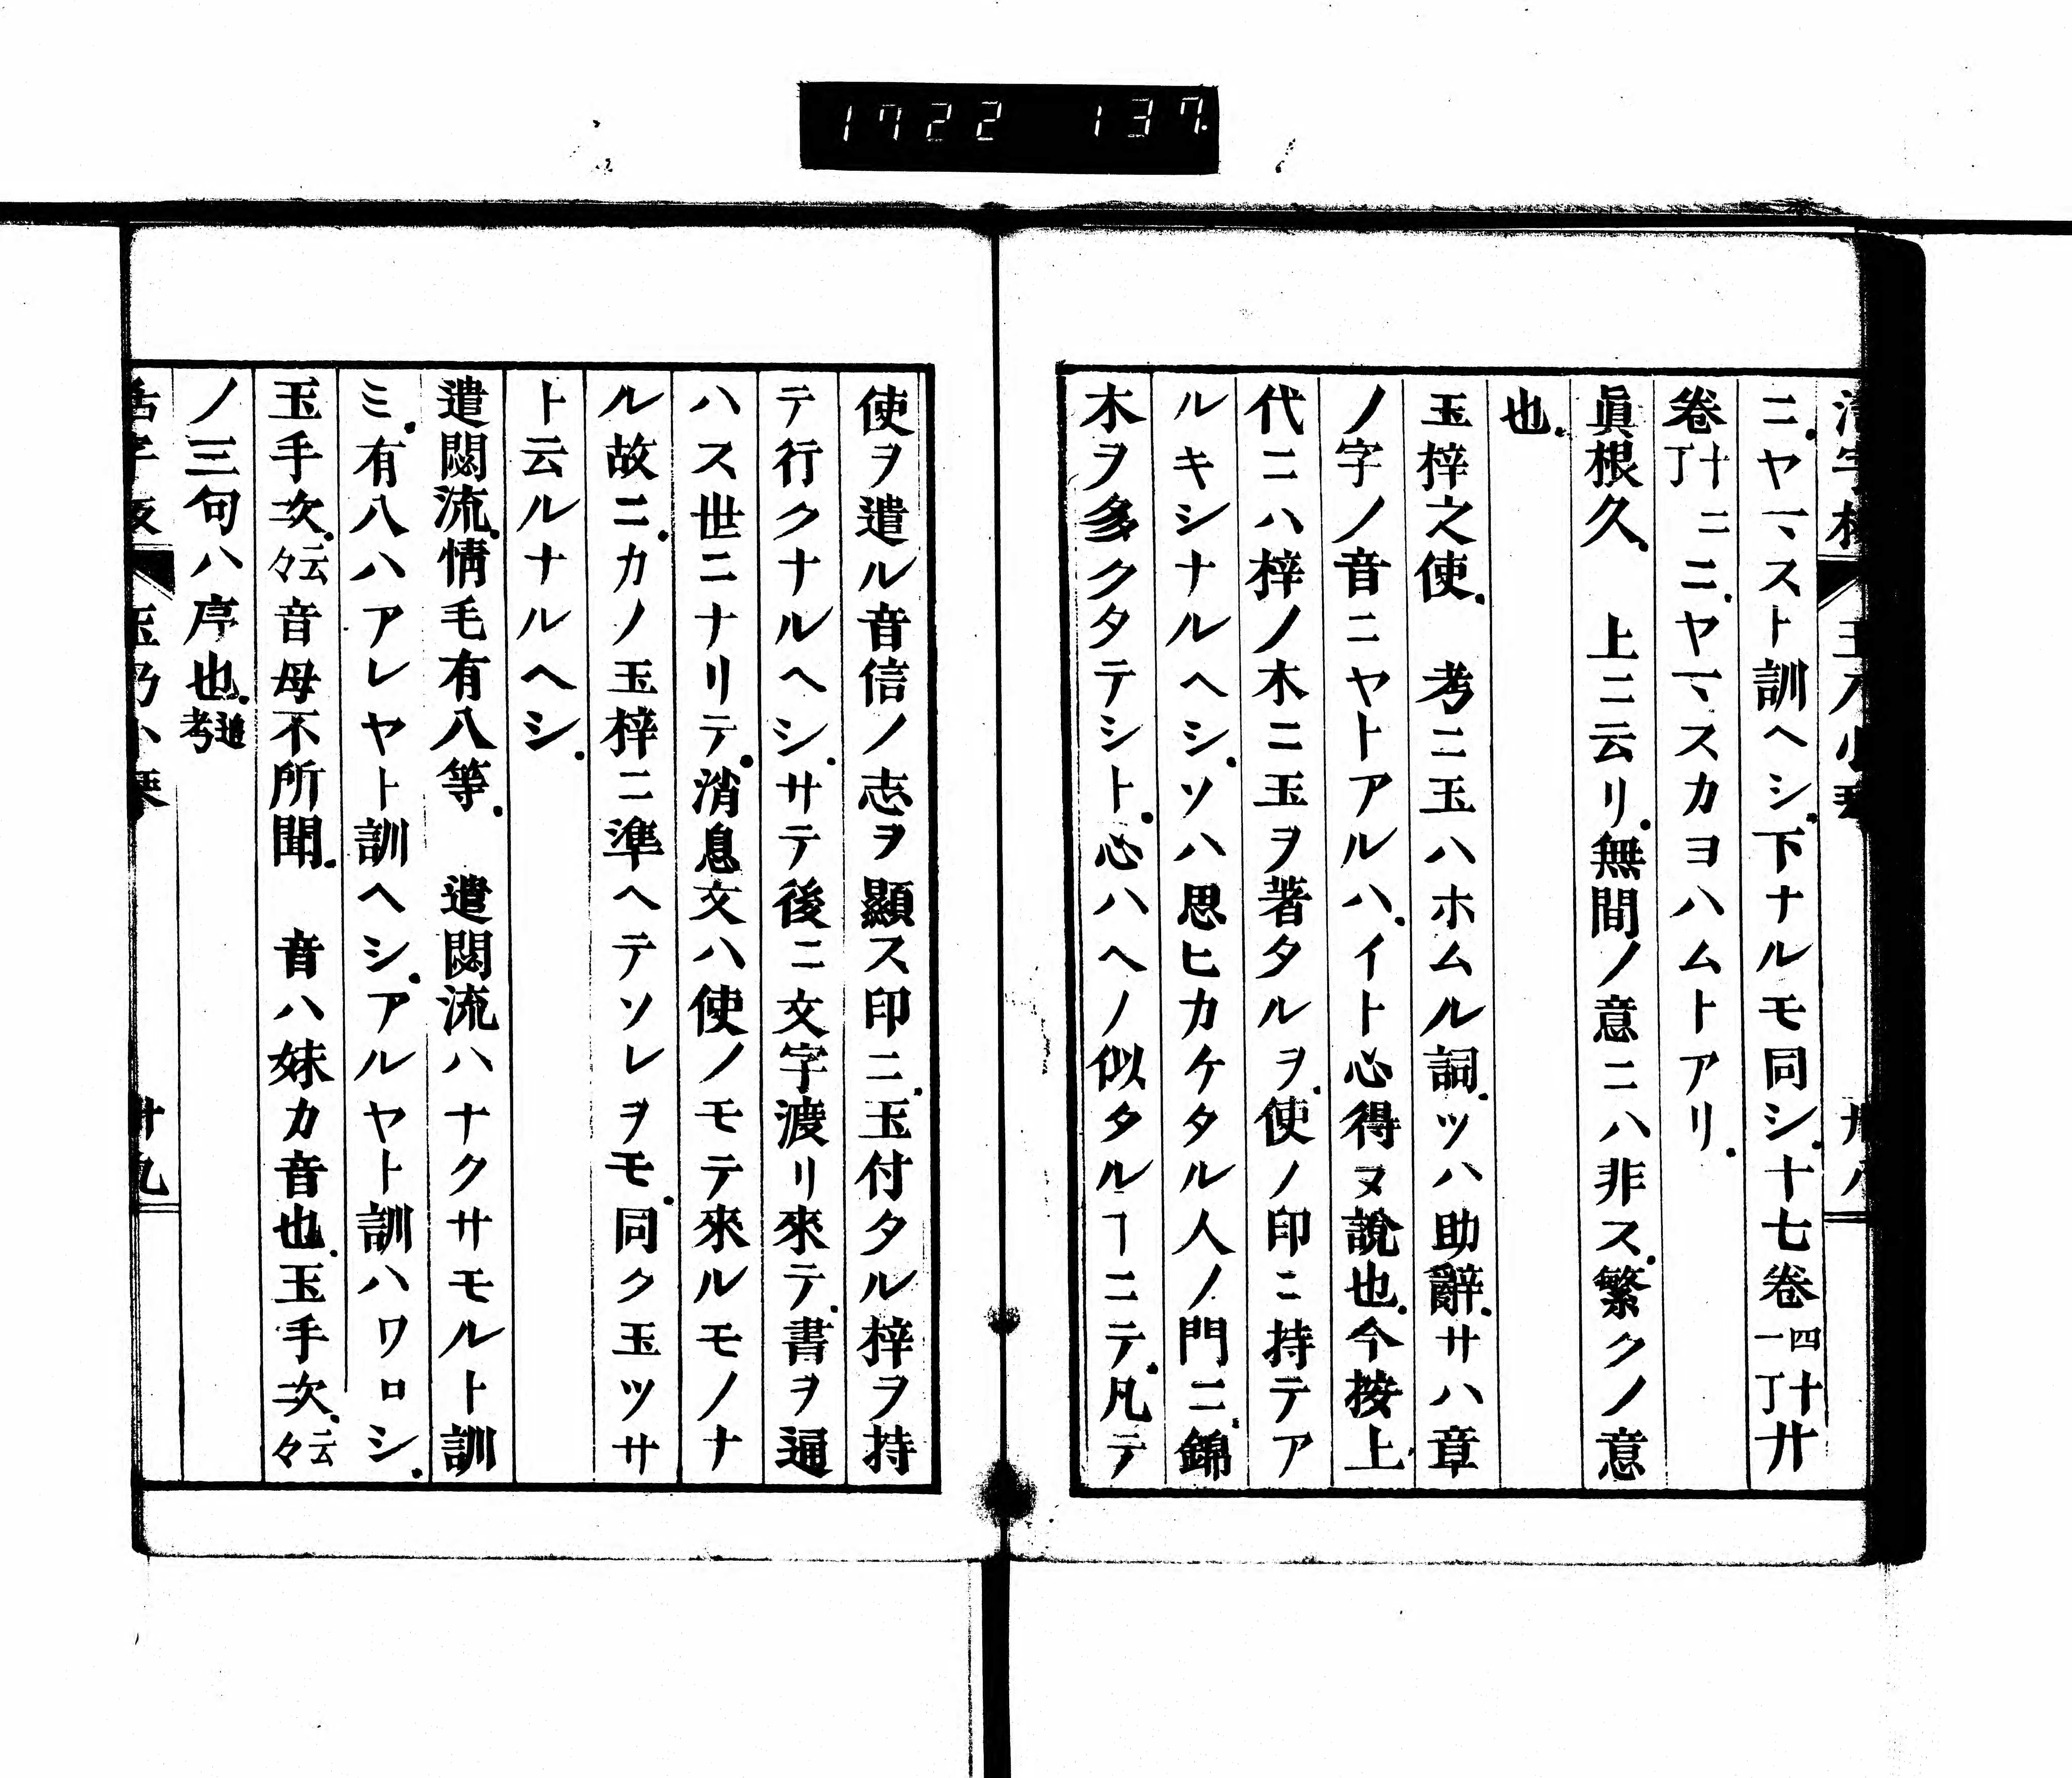 1722 137
ニ、ヤマスト訓ヘシ、下ナルモ同シ、十七卷四十一丁廿
卷十丁ニニ、ヤマスカヨハムトアリ、
眞根久、　上ニ云リ、無間ノ意ニハ非ス、繁クノ意
也、
玉梓之使、　考ニ玉ハホムル詞、ツハ助辭、サハ章
ノ字ノ音ニヤトアルハ、イト心得ヌ說也、今按上
代ニハ梓ノ木ニ玉ヲ著タルヲ、使ノ印ニ持テア
ルキシナルヘシ、ソハ思ヒカケタル人ノ門ニ、錦
木ヲ多クタテシト、心ハヘノ似タルヿニテ、凡テ
使ヲ遣ル音信ノ志ヲ顯ス印ニ、玉付タル梓ヲ持
テ行クナルヘシ、サテ後ニ文字渡リ來テ、書ヲ通
ハス世ニナリテ、消息文ハ使ノモテ來ルモノナ
ル故ニ、カノ玉梓ニ準ヘテソレヲモ、同ク玉ツサ
ト云ルナルヘシ、
遣悶流、情毛有八等、　遣悶流ハナクサモルト訓
ミ、有八ハアレヤト訓ヘシ、アルヤト訓ハワロシ、
玉手次、云々音母不所聞、　音ハ妹カ音也、玉手次、云々
ノ三句ハ序也、道考
廿九